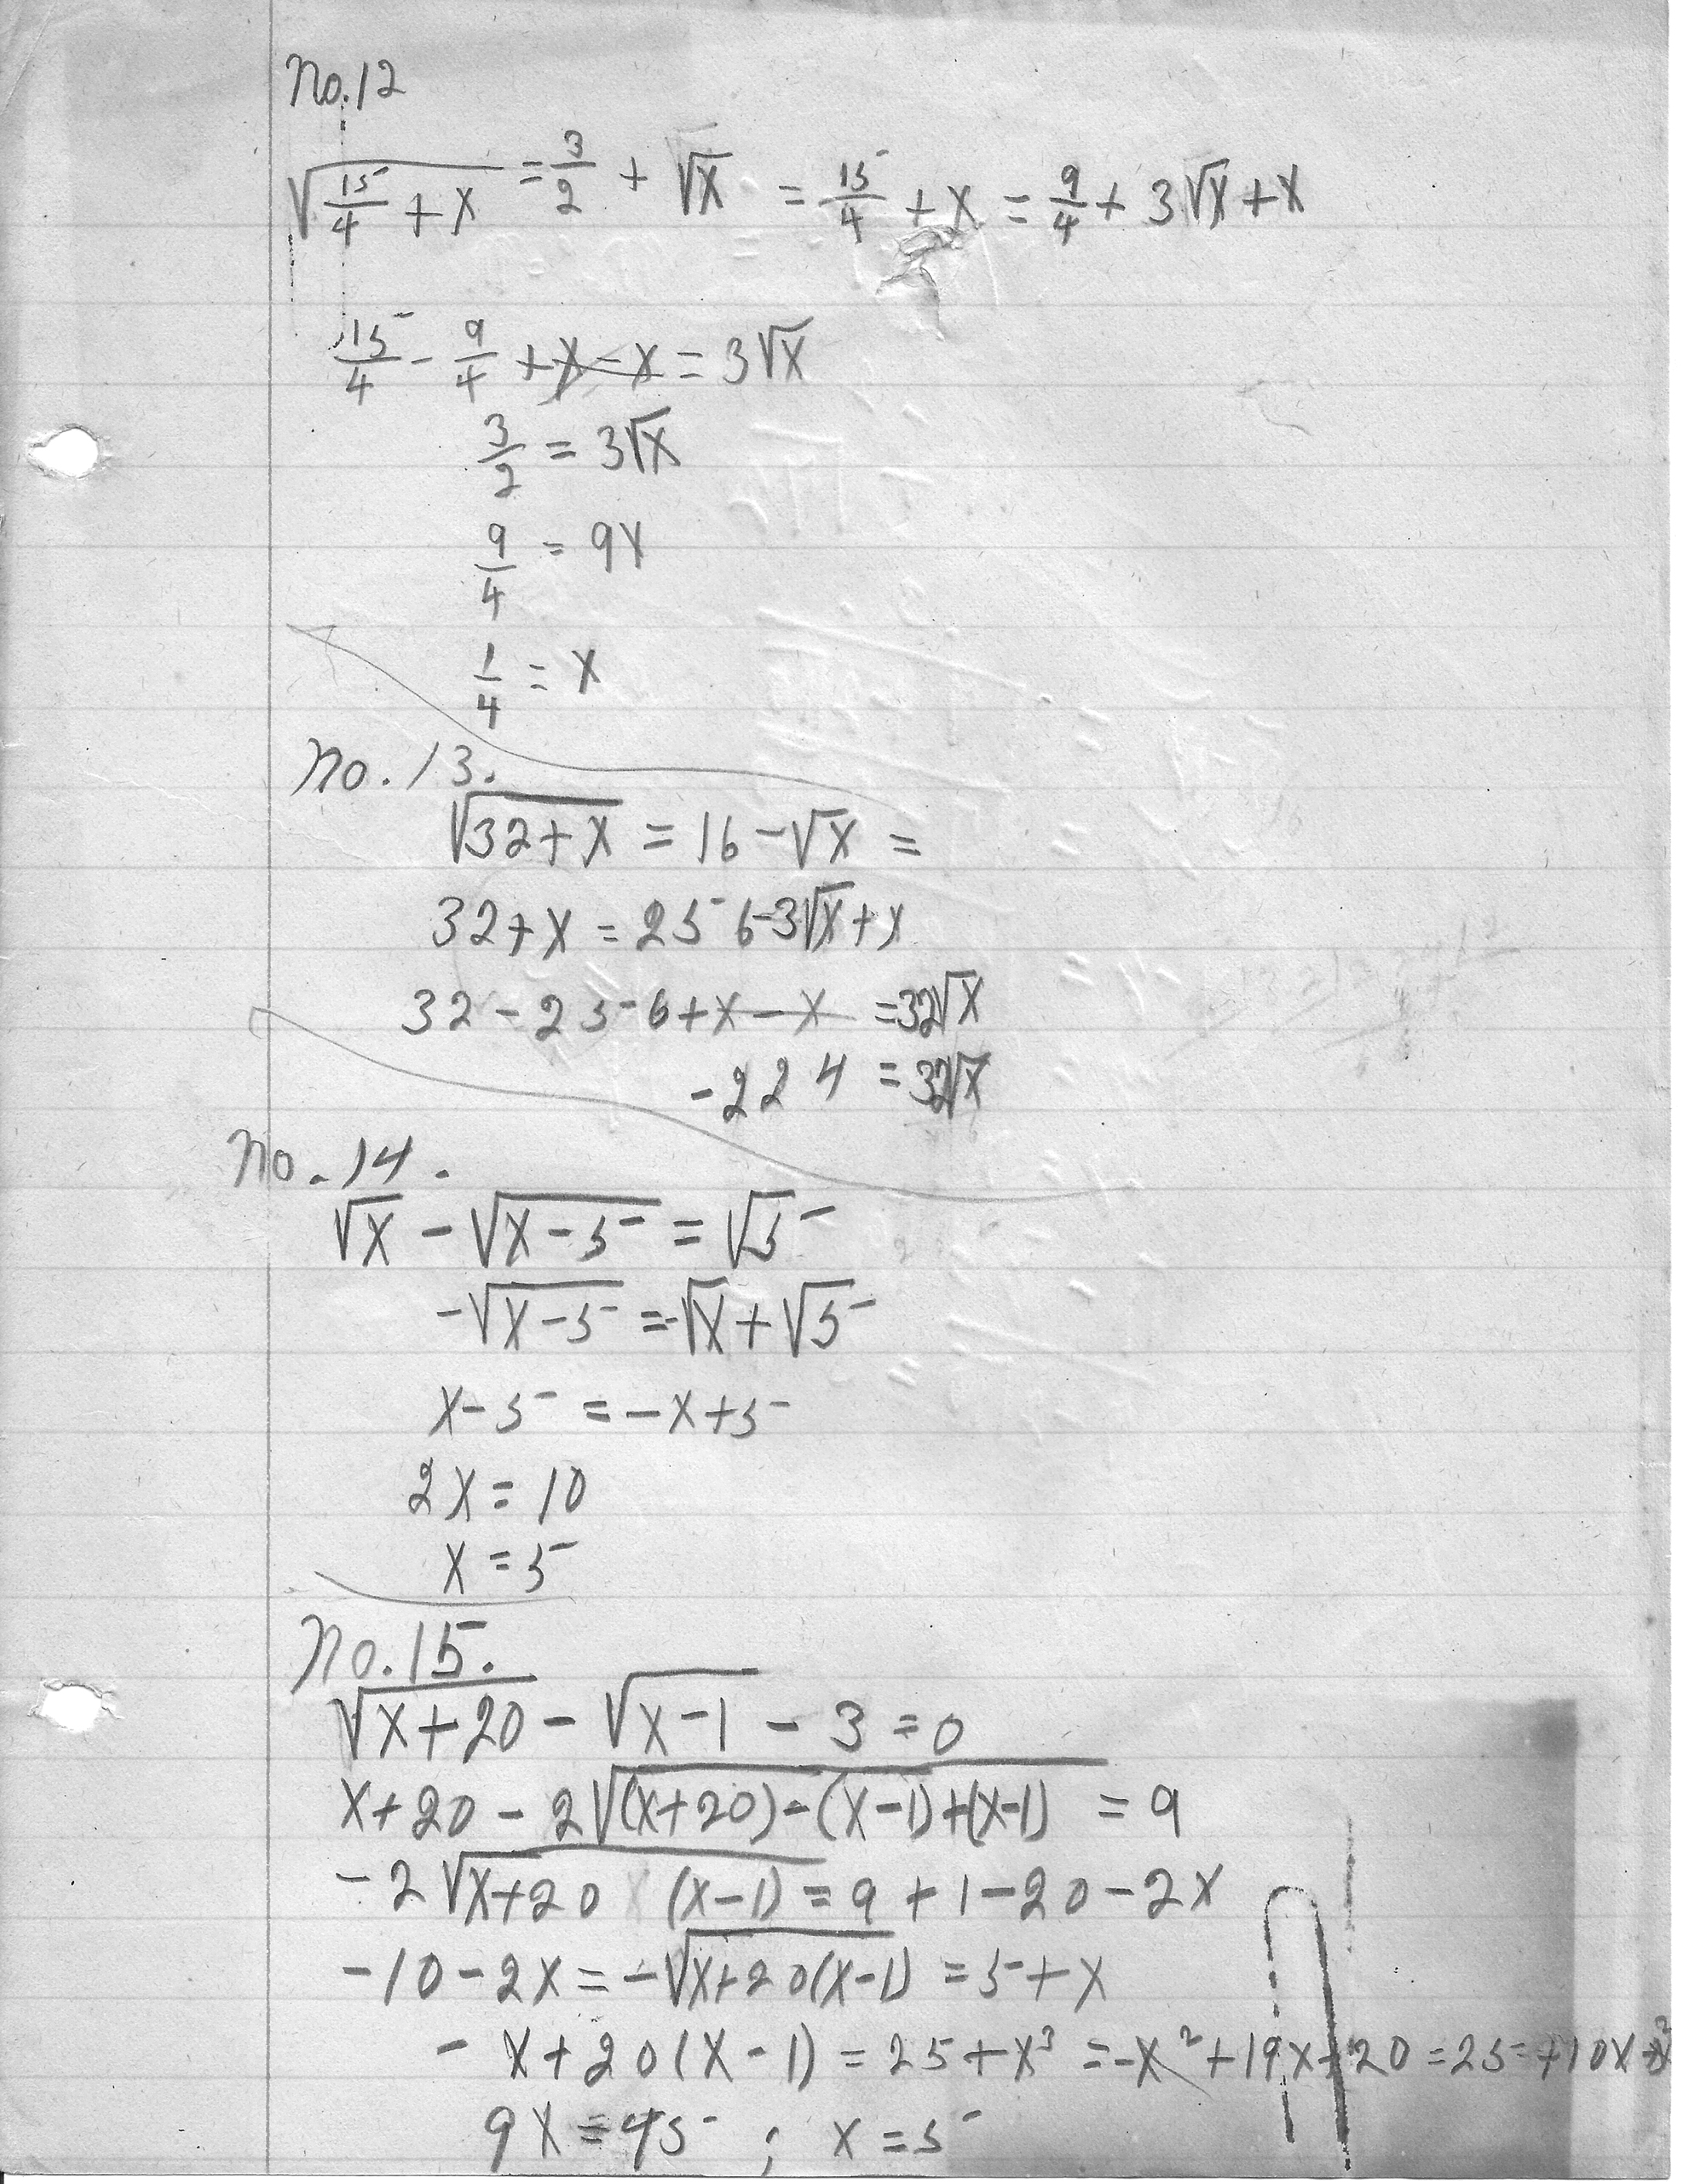 No. 12
√(15/4 + x) = 3/2 + √x = 15/4 + x = 9/4 + 3√x + x
15/4 - 9/4 + x - x = 3√x
3/2 = 3√x
9/4 = 9x
1/4 = x
No. 13.
√(32+x) = 16 - √x =
32 + x = 256 - 3√x + x
32 - 256 + x - x = 32√x
-224 = 32√x
No. 14.
√x - √(x-5) = √5
-√(x-5) = -√x + √5
x - 5 = -x + 5
2x = 10
x = 5
No. 15.
√(x+20) - √(x-1) - 3 = 0
x + 20 - 2√((x+20) - (x-1) + (x-1)) = 9
-2√(x+20 (x-1)) = 9 + 1 - 20 - 2x
-10 - 2x = -√(x+20(x-1)) = 5 + x
- x + 20(x-1) = 25 + x³ = -x² + 19x 20 = 25 + 10x
9x = 45 ; x = 5